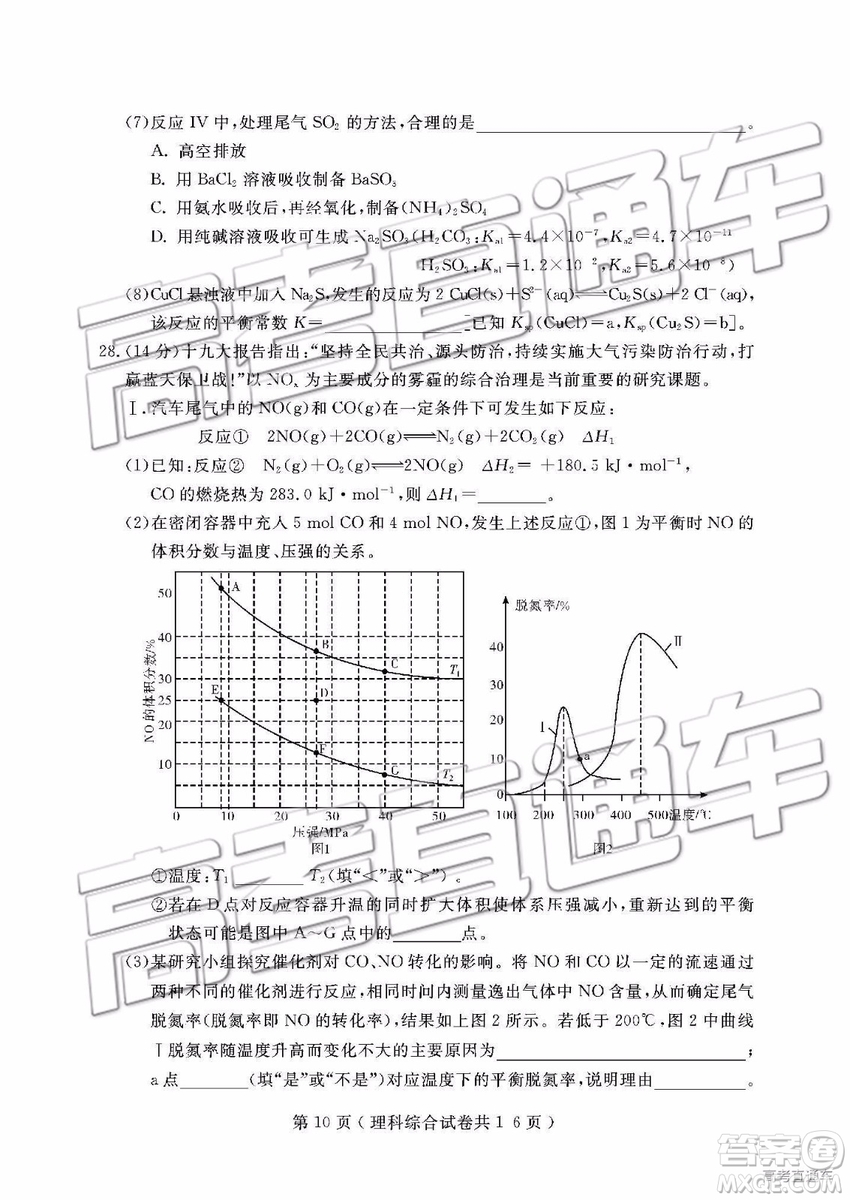 (7)反应 IV 中,处理尾气 SO₂ 的方法,合理的是＿＿＿＿＿＿。
A. 高空排放
B. 用 BaCl₂ 溶液吸收制备 BaSO₃
C. 用氨水吸收后,再经氧化,制备(NH₄)₂SO₄
D. 用纯碱溶液吸收可生成 Na₂SO₃(H₂CO₃:Kₐ₁=4.4×10⁻⁷,Kₐ₂=4.7×10⁻¹¹
H₂SO₃:Kₐ₁=1.2×10⁻²,Kₐ₂=5.6×10⁻⁸)
(8)CuCl 悬浊液中加入 Na₂S,发生的反应为 2 CuCl(s)+S²⁻(aq)⇌Cu₂S(s)+2 Cl⁻(aq),
该反应的平衡常数 K=＿＿＿＿＿＿[已知 Ksp(CuCl)=a,Ksp(Cu₂S)=b]。
28.(14 分)十九大报告指出:“坚持全民共治、源头防治,持续实施大气污染防治行动,打
赢蓝天保卫战!”以 NOₓ 为主要成分的雾霾的综合治理是当前重要的研究课题。
Ⅰ.汽车尾气中的 NO(g)和 CO(g)在一定条件下可发生如下反应:
反应① 2NO(g)+2CO(g)⇌N₂(g)+2CO₂(g) ΔH₁
(1)已知:反应② N₂(g)+O₂(g)⇌2NO(g) ΔH₂= +180.5 kJ·mol⁻¹,
CO 的燃烧热为 283.0 kJ·mol⁻¹,则 ΔH₁=＿＿＿＿。
(2)在密闭容器中充入 5 mol CO 和 4 mol NO,发生上述反应①,图 1 为平衡时 NO 的
体积分数与温度、压强的关系。
NO 的体积分数/%
50
40
30
25
20
10
0
10
20
30
40
50
A
B
C
T₁
E
D
F
G
T₂
压强/MPa
图1
脱氮率/%
40
30
20
10
0
Ⅰ
Ⅱ
a
100 200 300 400 500 温度/℃
图2
①温度:T₁ ＿＿＿＿ T₂(填“<”或“>”)。
②若在 D 点对反应容器升温的同时扩大体积使体系压强减小,重新达到的平衡
状态可能是图中 A～G 点中的＿＿＿＿点。
(3)某研究小组探究催化剂对 CO、NO 转化的影响。将 NO 和 CO 以一定的流速通过
两种不同的催化剂进行反应,相同时间内测量逸出气体中 NO 含量,从而确定尾气
脱氮率(脱氮率即 NO 的转化率),结果如上图 2 所示。若低于 200℃,图 2 中曲线
Ⅰ脱氮率随温度升高而变化不大的主要原因为＿＿＿＿＿＿;
a 点＿＿＿＿(填“是”或“不是”)对应温度下的平衡脱氮率,说明理由＿＿＿＿。
第 10 页(理科综合试卷共 1 6 页)
高考直通车
答案圈
高考直通车
MXQE.COM